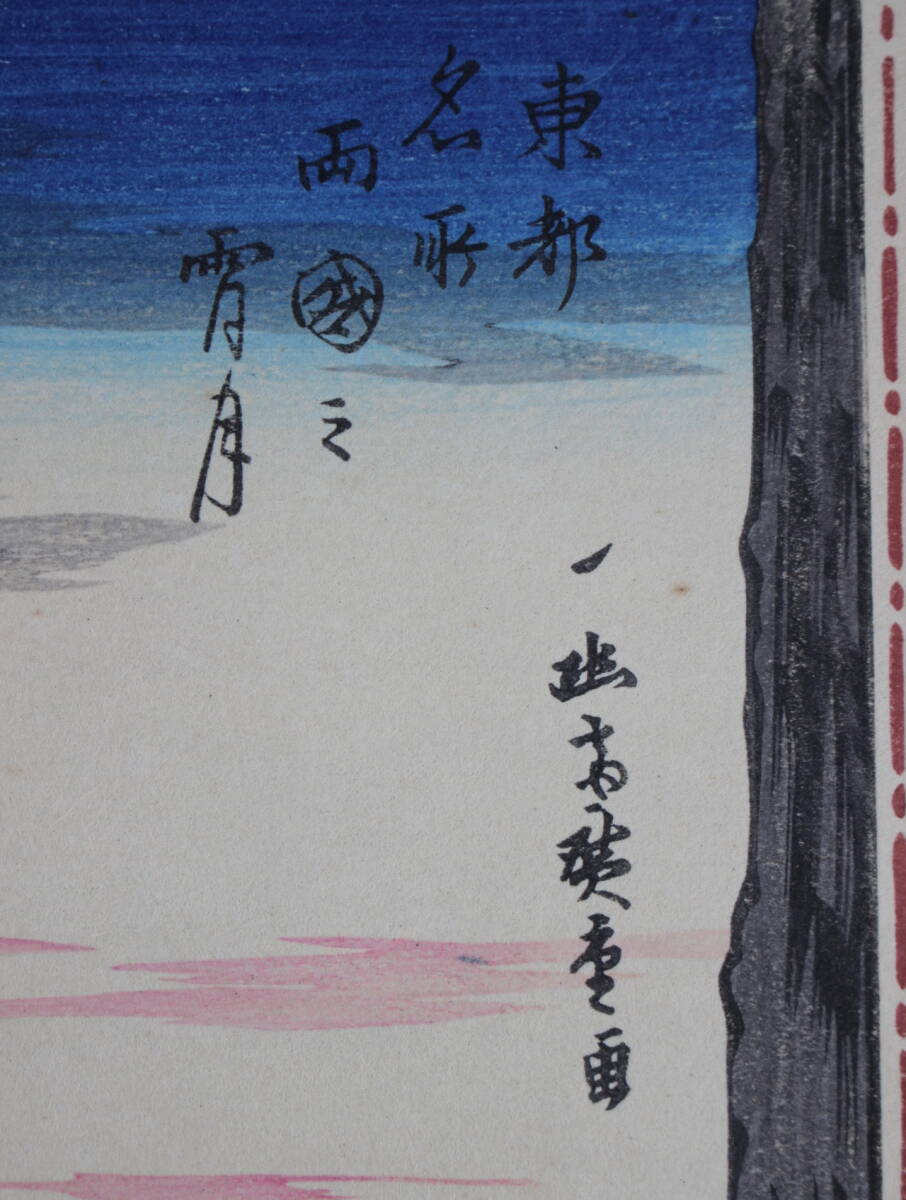 東都
名所
両國之
宵月
一幽斎廣重画